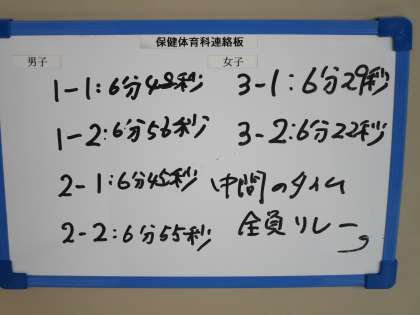 保健体育科連絡板
男子
女子
1-1:6分48秒
1-2:6分56秒
2-1:6分45秒
2-2:6分55秒
3-1:6分29秒
3-2:6分22秒
中間のタイム
全員リレー